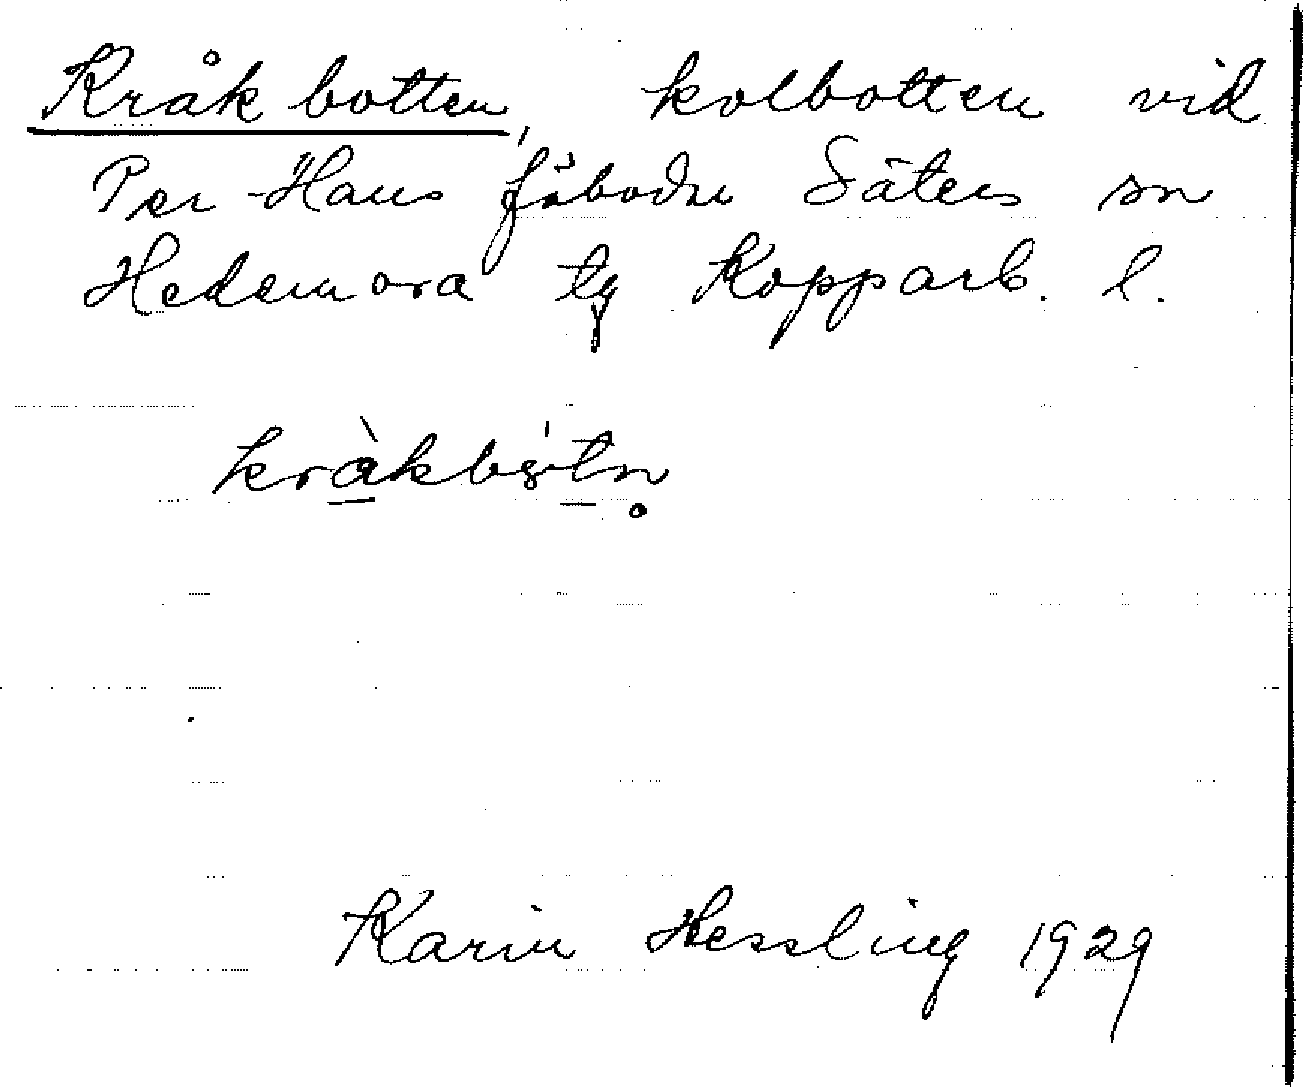 Kråkbotten, kolbotten vid
Per-Hans fäbodar Säters sn
Hedemora tg Kopparb. l.
kràkbótn̥
Karin Hessling 1929